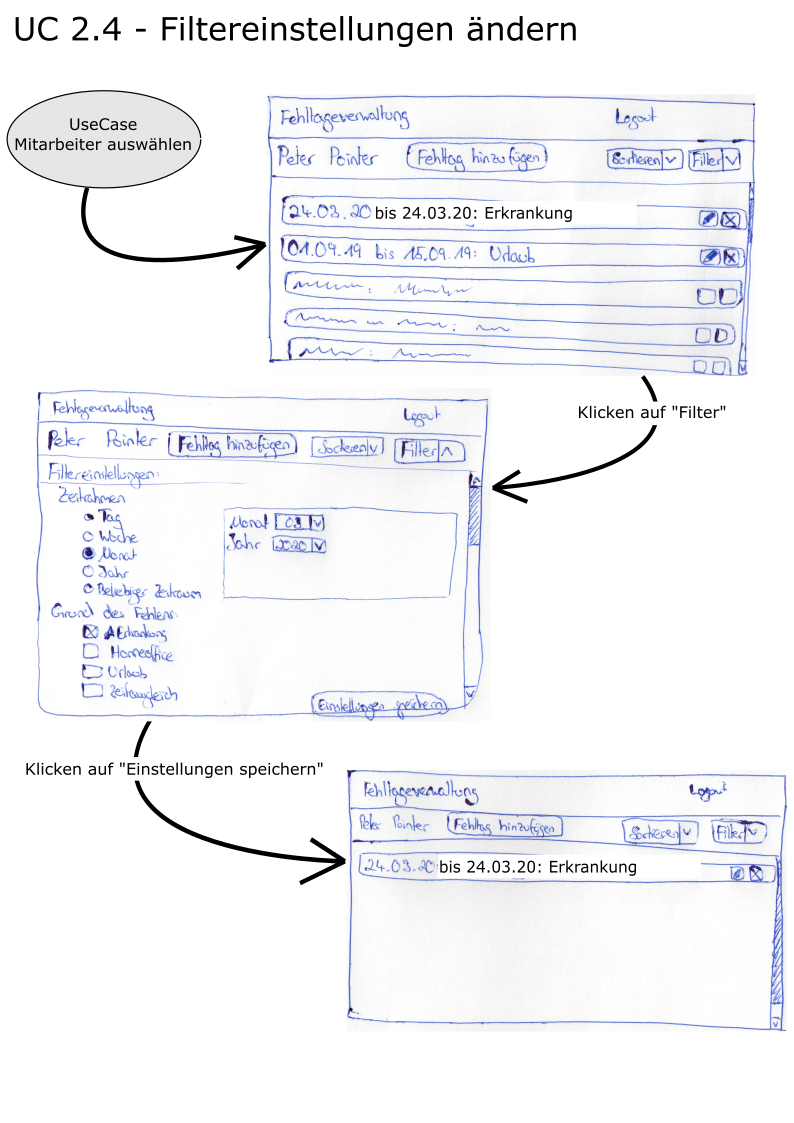 UC 2.4 - Filtereinstellungen ändern
UseCase
Mitarbeiter auswählen
Fehltageverwaltung Logout
Peter Pointer Fehltag hinzufügen Sortieren Filter
24.03.20 bis 24.03.20: Erkrankung
01.09.19 bis 15.09.19: Urlaub
Klicken auf "Filter"
Fehltageverwaltung Logout
Peter Pointer Fehltag hinzufügen Sortieren Filter
Filtereinstellungen:
Zeitrahmen
Tag
Woche
Monat
Jahr
Beliebiger Zeitraum
Monat 03
Jahr 2020
Grund des Fehlens:
Erkrankung
Homeoffice
Urlaub
Zeitausgleich
Einstellungen speichern
Klicken auf "Einstellungen speichern"
Fehltageverwaltung Logout
Peter Pointer Fehltag hinzufügen Sortieren Filter
24.03.20 bis 24.03.20: Erkrankung